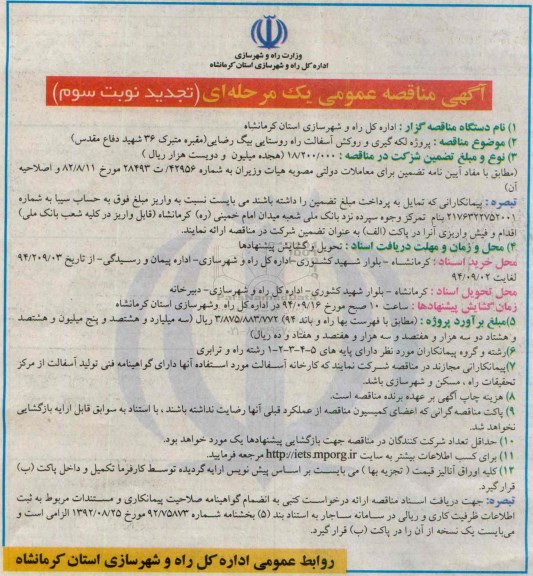 وزارت راه و شهرسازی
اداره کل راه و شهرسازی استان کرمانشاه
آگهی مناقصه عمومی یک مرحله‌ای (تجدید نوبت سوم)
۱) نام دستگاه مناقصه گزار : اداره کل راه و شهرسازی استان کرمانشاه
۲) موضوع مناقصه : پروژه لکه گیری و روکش آسفالت راه روستایی بیگ رضایی(مقبره متبرک ۳۶ شهید دفاع مقدس)
۳) نوع و مبلغ تضمین شرکت در مناقصه : ۱۸/۲۰۰/۰۰۰ (هجده میلیون و دویست هزار ریال )
(مطابق با مفاد آیین نامه تضمین برای معاملات دولتی مصوبه هیات وزیران به شماره ۴۲۹۵۶/ ت ۲۸۴۹۳ مورخ ۸۲/۸/۱۱ و اصلاحیه
آن)
تبصره : پیمانکارانی که تمایل به پرداخت مبلغ تضمین را داشته باشند می بایست نسبت به واریز مبلغ فوق به حساب سیبا به شماره
۲۱۷۶۳۲۲۷۵۲۰۰۱ بنام تمرکز وجوه سپرده نزد بانک ملی شعبه میدان امام خمینی (ره) کرمانشاه (قابل واریز در کلیه شعب بانک ملی)
اقدام و فیش واریزی آنرا در پاکت (الف) به عنوان تضمین شرکت در مناقصه ارائه نمایند.
۴) محل و زمان و مهلت دریافت اسناد : تحویل و گشایش پیشنهادها
محل خرید اسناد : کرمانشاه - بلوار شهید کشوری-اداره کل راه و شهرسازی- اداره پیمان و رسیدگی- از تاریخ ۹۴/۰۹/۰۳
لغایت ۹۴/۰۹/۰۲
محل تحویل اسناد : کرمانشاه - بلوار شهید کشوری- اداره کل راه و شهرسازی-دبیرخانه
زمان گشایش پیشنهادها : ساعت ۱۰ صبح مورخ ۹۴/۰۹/۱۶ در اداره کل راه وشهرسازی استان کرمانشاه
۵)مبلغ برآورد پروژه : (مطابق با فهرست بها راه و باند ۹۴) ۳/۸۷۵/۸۸۳/۷۷۲ ریال (سه میلیارد و هشتصد و پنج میلیون و هشتصد
و هشتاد دو سه هزار و هفتصد و سه هزار و هفتصد و هفتاد و ده ریال)
۶)رشته و گروه پیمانکاران مورد نظر دارای پایه های ۵-۴-۳-۲-۱ رشته راه و ترابری
۷)پیمانکارانی مجازند در مناقصه شرکت نمایند که کارخانه آسفالت مورد استفاده آنها دارای گواهینامه فنی تولید آسفالت از مرکز
تحقیقات راه ، مسکن و شهرسازی باشد.
۸) هزینه چاپ آگهی بر عهده برنده مناقصه است.
۹) پاکت مناقصه گرانی که اعضای کمیسیون مناقصه از عملکرد قبلی آنها رضایت نداشته باشند ، با استناد به سوابق قابل ارایه بازگشایی
نخواهد شد.
۱۰) حداقل تعداد شرکت کنندگان در مناقصه جهت بازگشایی پیشنهادها یک مورد خواهد بود.
۱۱) برای کسب اطلاعات بیشتر به سایت http://iets.mporg.ir مرجعه فرمایید.
۱۲) کلیه اوراق آنالیز قیمت ( تجزیه بها ) می بایست بر اساس پیش نویس ارایه گردیده توسط کارفرما تکمیل و داخل پاکت (ب)
قرار گیرد.
تبصره: جهت دریافت اسناد مناقصه ارائه درخواست کتبی به انضمام گواهینامه صلاحیت پیمانکاری و مستندات مربوط به ثبت
اطلاعات ظرفیت کاری و ریالی در سامانه ساجار به استناد بند (۵) بخشنامه شماره ۹۲/۷۵۸۷۳ مورخ ۱۳۹۲/۰۸/۲۵ الزامی است و
می‌بایست یک نسخه از آن را در پاکت (ب) قرار گیرد.
روابط عمومی اداره کل راه و شهرسازی استان کرمانشاه